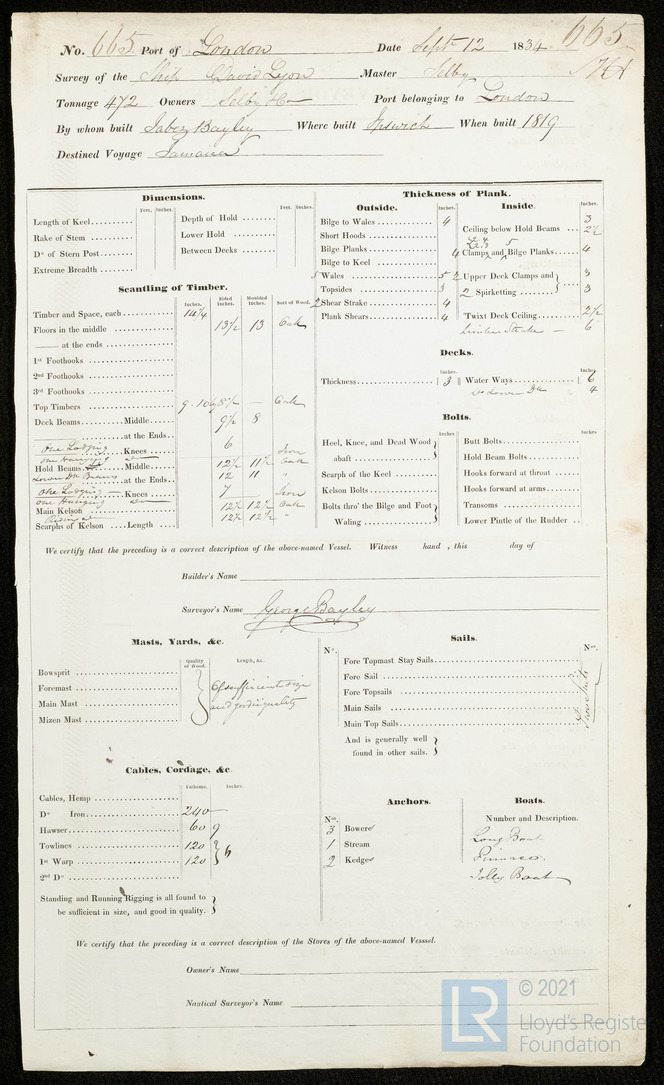 No. 665 Port of London Date Sept. 12 1834. 665
Survey of the Ship David Lyon Master Selby
Tonnage 472 Owners Selby & Co Port belonging to London
By whom built Jabez Bayley Where built Ipswich When built 1819
Destined Voyage Jamaica
Dimensions.
Feet. Inches. Feet. Inches.
Length of Keel
Rake of Stem
Do of Stern Post
Extreme Breadth
Depth of Hold
Lower Hold
Between Decks
Scantling of Timber.
Inches. Sided Inches. Moulded Inches. Sort of Wood.
Timber and Space, each 14 3/4
Floors in the middle 13 1/2 13 Oak
—— at the ends
1st Foothooks
2nd Foothooks
3rd Foothooks
Top Timbers Oak
Deck Beams Middle 9 1/2 8
at the Ends
One Lodging
one Hanging Do Knees 6 Iron
Hold Beams Middle 12 1/2 11 1/2 Oak
Lower Dk Beams at the Ends 12 11 "
One Lodging — Knees 7 Iron
one Hanging Do
Main Kelson 12 1/2 12 1/2 Oak
Rising Do 12 1/2 12 1/2 "
Scarphs of Kelson Length
Thickness of Plank.
Outside.
Inches.
Bilge to Wales 4
Short Hoods
Bilge Planks
Bilge to Keel
5 Wales 5
Topsides 3
2 Shear Strake 4
Plank Shears 4
Inside.
Inches.
3
Ceiling below Hold Beams 2 1/2
4 Clamps and Bilge Planks 4
2 Upper Deck Clamps and } 3
2 Spirketting 3
'Twixt Deck Ceiling 2 1/2
Limber Strake — 6
Decks.
Inches. Inches
Thickness 3 Water Ways 6
Do Lower Dk 4
Bolts.
Inches Inches
Heel, Knee, and Dead Wood abaft
Scarph of the Keel
Kelson Bolts
Bolts thro' the Bilge and Foot Waling
Butt Bolts
Hold Beam Bolts
Hooks forward at throat
Hooks forward at arms
Transoms
Lower Pintle of the Rudder
We certify that the preceding is a correct description of the above-named Vessel. Witness hand , this day of
Builder's Name
Surveyor's Name George Bayley
Masts, Yards, &c.
Quality of Wood. Length, &c.
Bowsprit
Foremast
Main Mast
Mizen Mast
Of sufficient size
and good in quality
Sails.
No. No.
Fore Topmast Stay Sails
Fore Sail
Fore Topsails
Main Sails
Main Top Sails
And is generally well
found in other sails.
Cables, Cordage, &c
Fathoms. Inches.
Cables, Hemp
Do Iron 240
Hawser 60 9
Towlines 120
1st Warp 120
2nd Do
Standing and Running Rigging is all found to
be sufficient in size, and good in quality.
Anchors.
No.
3 Bowers
1 Stream
2 Kedges
Boats.
Number and Description.
Long Boat
Pinnace
Jolly Boat
We certify that the preceding is a correct description of the Stores of the above-named Vesssel.
Owner's Name
Nautical Surveyor's Name
LR © 2021
Lloyd's Register
Foundation